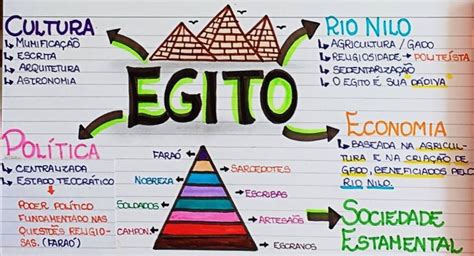 CULTURA
MUMIFICAÇÃO
ESCRITA
ARQUITETURA
ASTRONOMIA
EGITO
RIO NILO
AGRICULTURA / GADO
RELIGIOSIDADE → POLITEÍSTA
SEDENTARIZAÇÃO
O EGITO É SUA DÁDIVA
POLÍTICA
CENTRALIZADA
ESTADO TEOCRÁTICO
PODER POLÍTICO
FUNDAMENTADO NAS
QUESTÕES RELIGIO-
SAS. (FARAÓ)
FARAÓ
SARCEDOTES
NOBREZA
ESCRIBAS
SOLDADOS
ARTESÃOS
CAMPON.
ESCRAVOS
ECONOMIA
BASEADA NA AGRICUL-
TURA E NA CRIAÇÃO DE
GADO, BENEFICIADOS PELO
RIO NILO.
SOCIEDADE
ESTAMENTAL